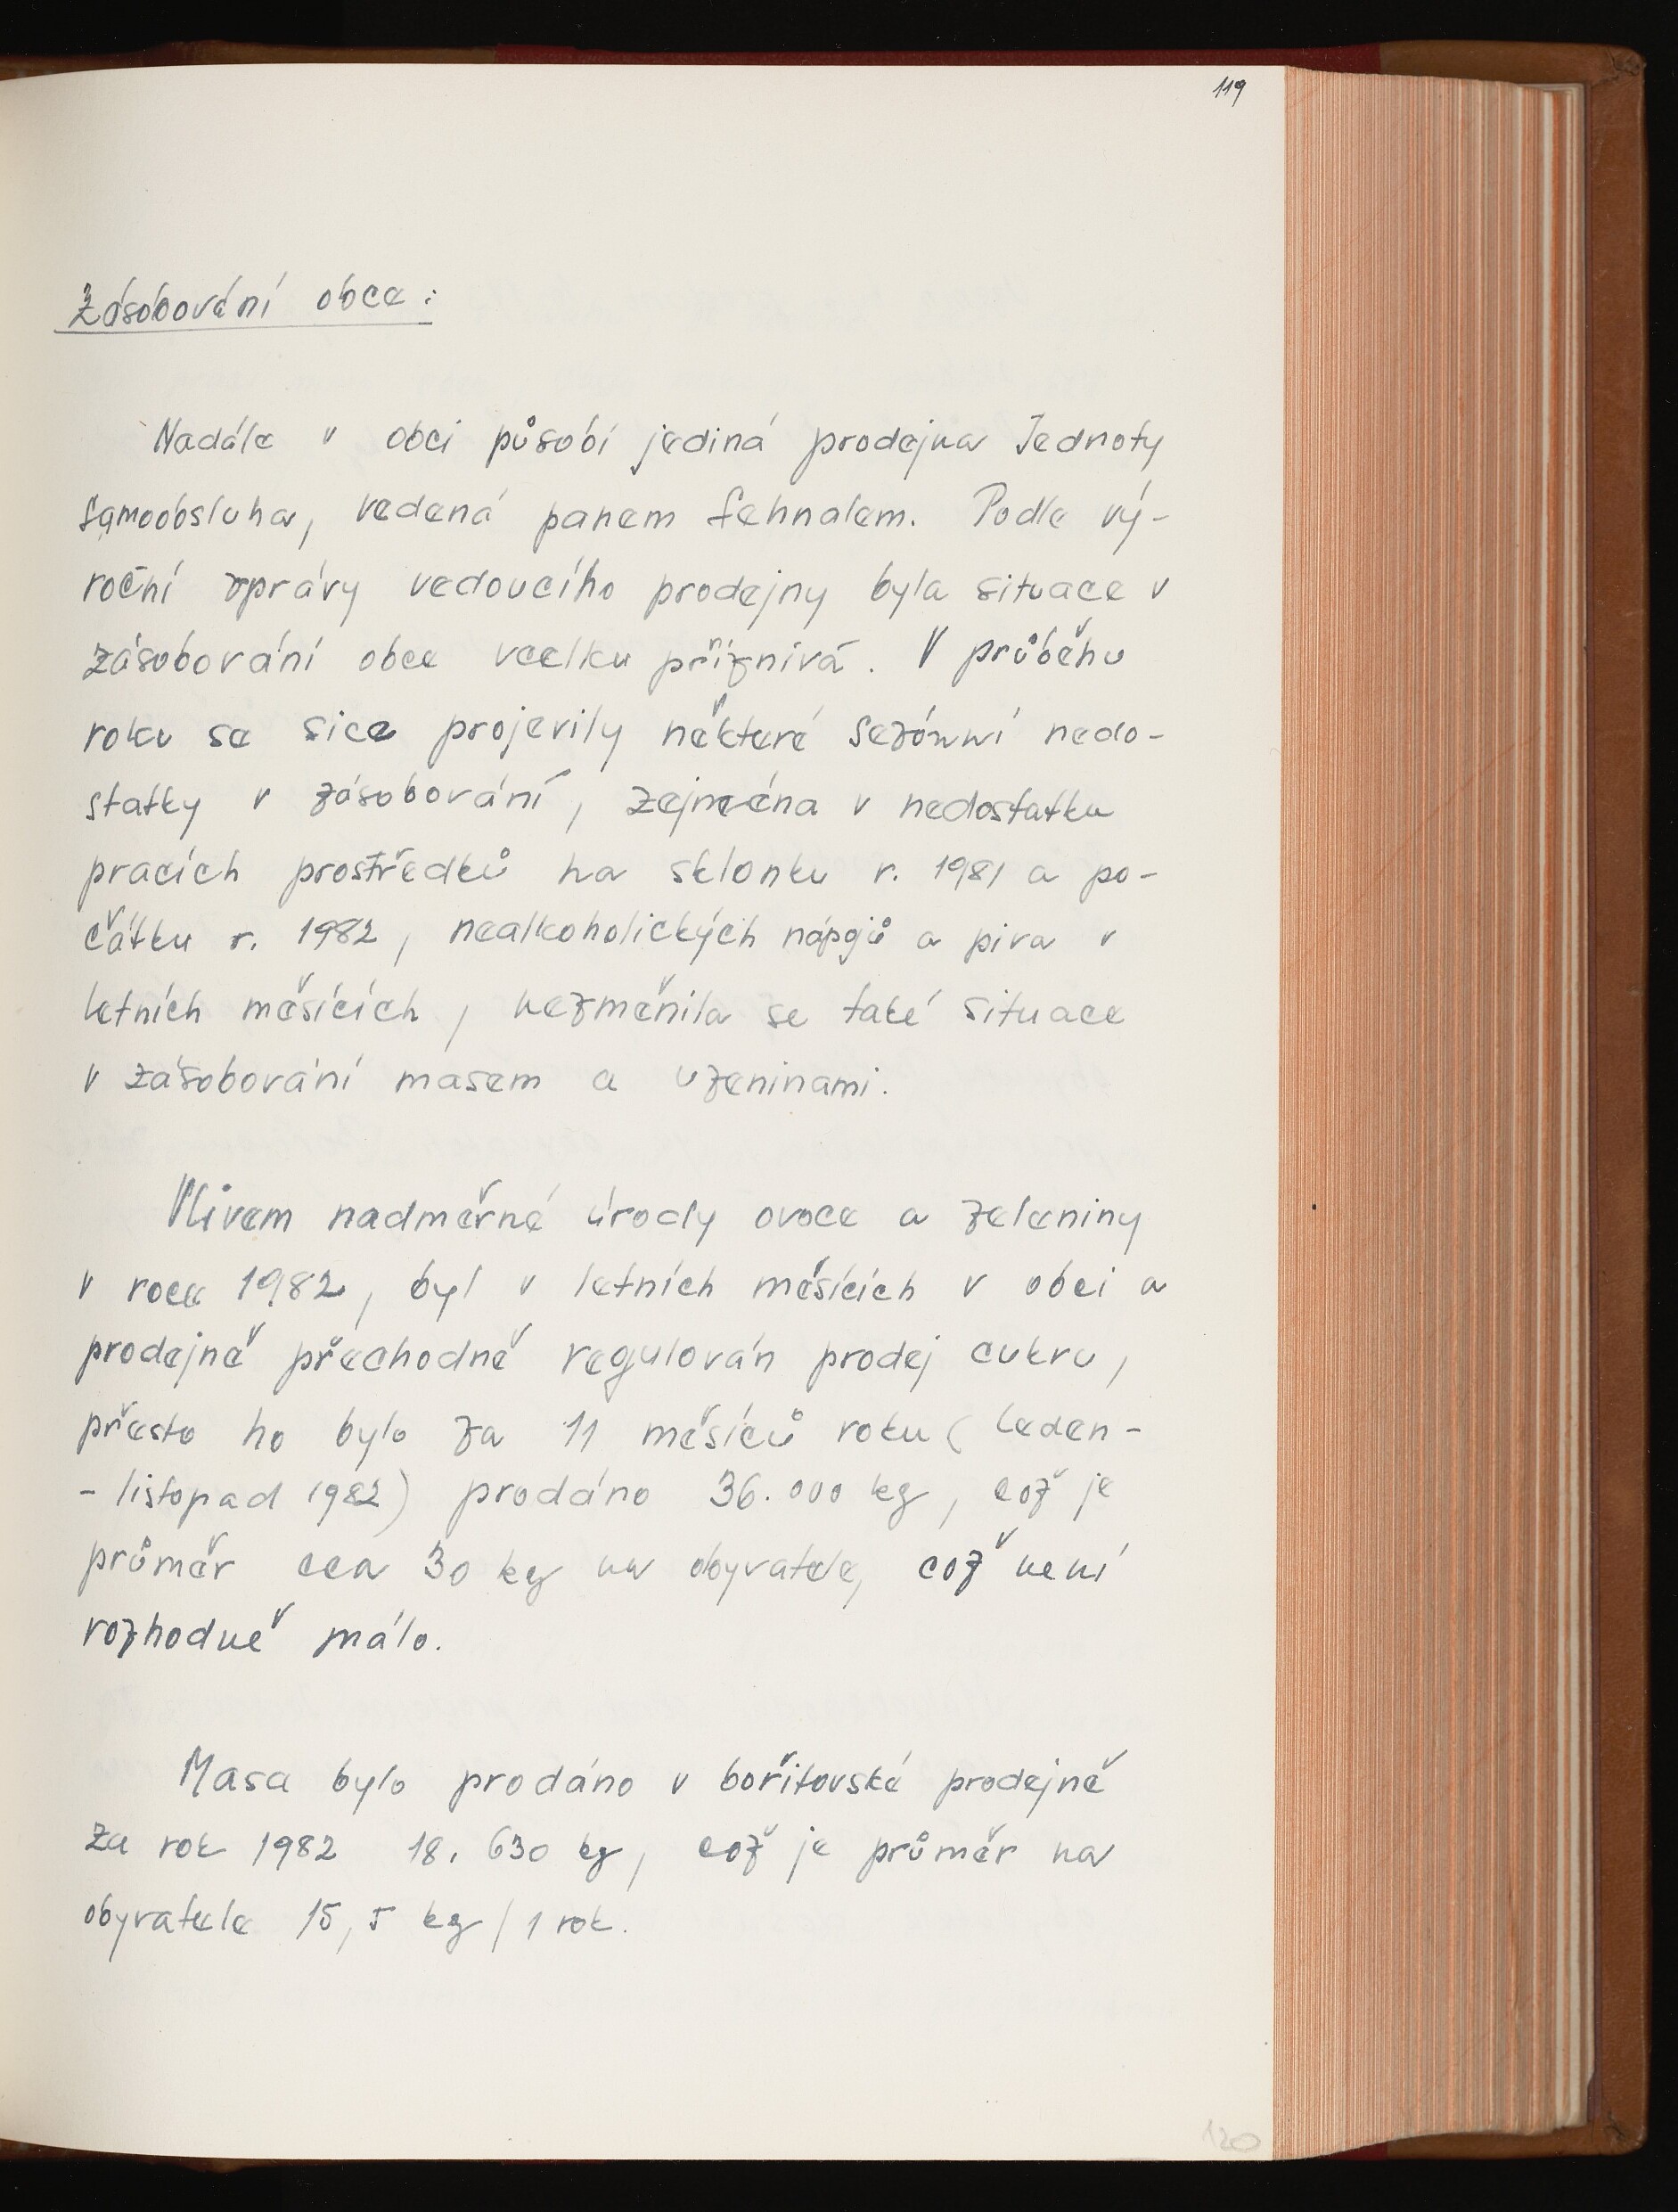 119
Zásobování obce:
Nadále v obci působí jediná prodejna Jednoty
Samoobsluha, vedená panem Sehnalem. Podle vý-
roční zprávy vedoucího prodejny byla situace v
zásobování obce vcelku příznivá. V průběhu
roku se sice projevily některé sezónní nedo-
statky v zásobování, zejména v nedostatku
pracích prostředků na sklonku r. 1981 a po-
čátku r. 1982, nealkoholických nápojů a piva v
letních měsících, nezměnila se také situace
v zásobování masem a uzeninami.
Vlivem nadměrné úrody ovoce a zeleniny
v roce 1982, byl v letních měsících v obci a
prodejně přechodně regulován prodej cukru,
přesto ho bylo za 11 měsíců roku (leden-
- listopad 1982) prodáno 36.000 kg, což je
průměr cca 30 kg na obyvatele, což není
rozhodně málo.
Masa bylo prodáno v bořitovské prodejně
za rok 1982 18.630 kg, což je průměr na
obyvatele 15,5 kg/1 rok.
120